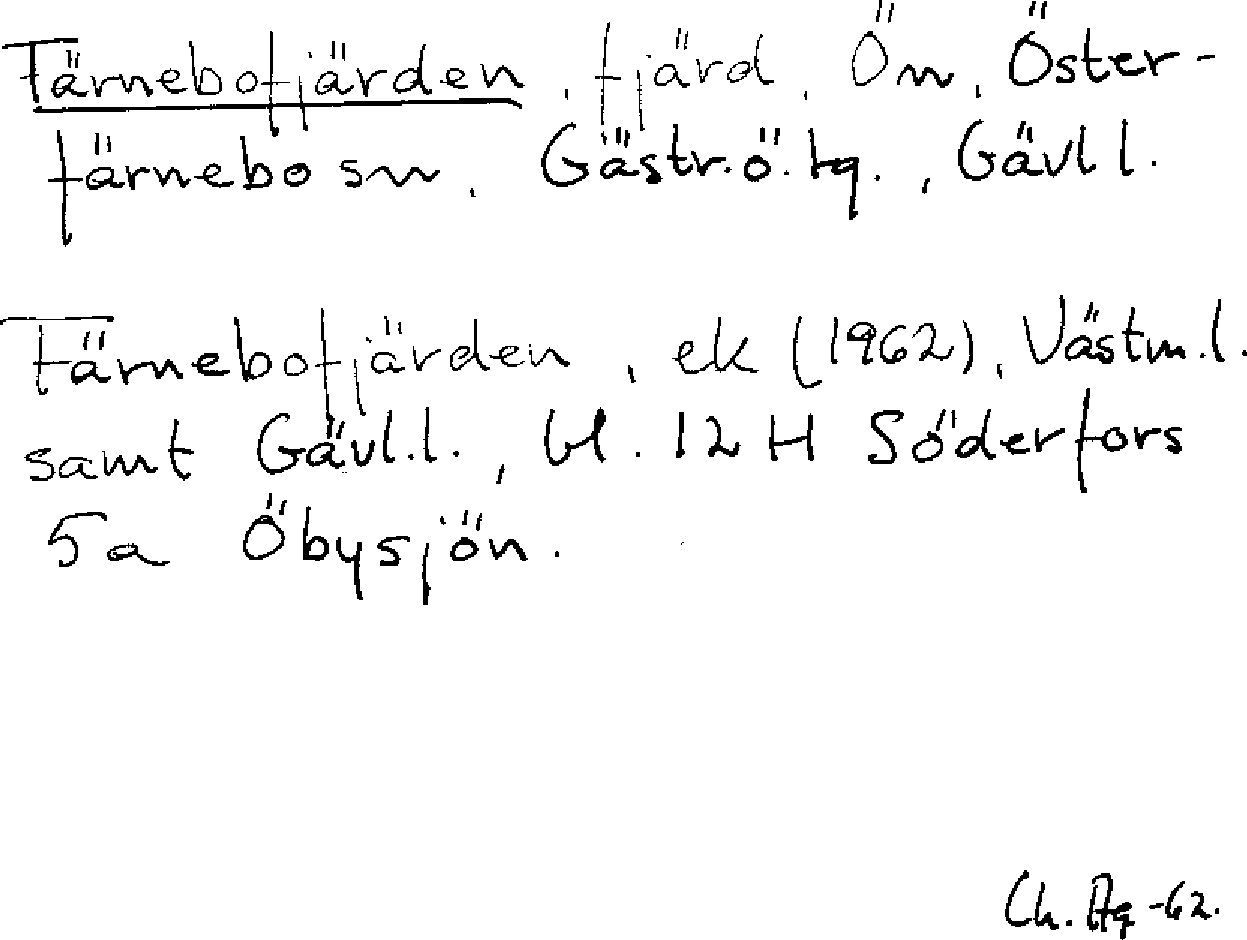 Färnebofjärden, fjärd, Ön, Öster-
färnebo sn, Gästr.ö.tg., Gävl.l.
Färnebofjärden, ek (1962), Västm.l.
samt Gävl.l., bl. 12 H Söderfors
5a Öbysjön.
Ch. Ag -62.